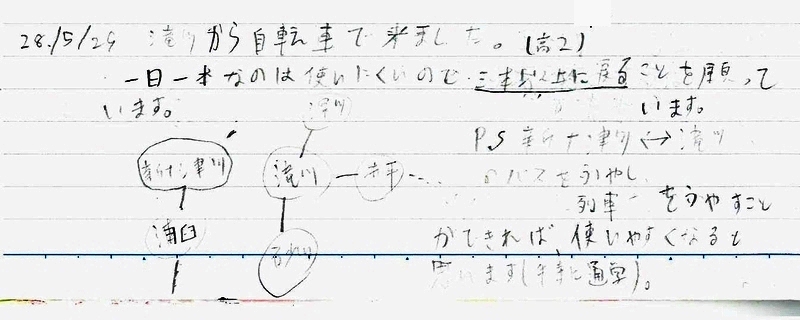 28./5/29 滝川から自転車で来ました。(高2)
一日一本なのは使いにくいので三本以上に戻ることを願って
います。
深川
PS 新十津川 ↔ 滝川
新十津川
滝川
のバスをふやし
列車 をふやすこと
浦臼
ができれば、使いやすくなると
砂川
思います( 通学)。